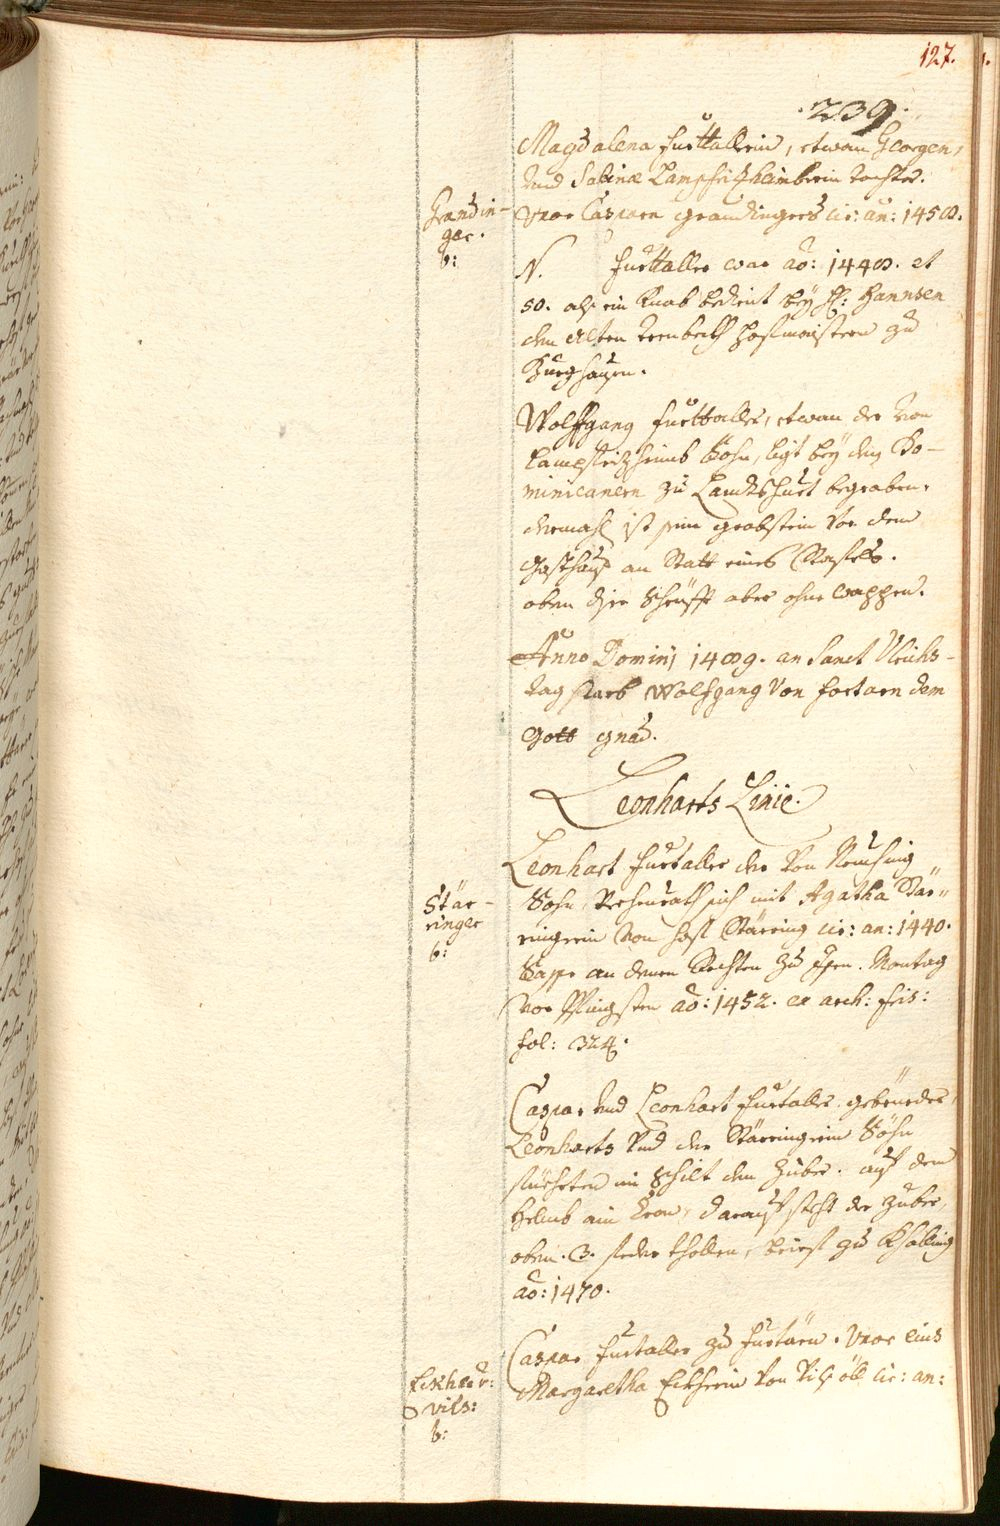 127.
.239.
Magdalena Furttallerin, etwan Georgen,
und Sabinæ Lampfritzheimberin tochter.
Grandin-
ger.
b:
Vxor Casparn grandingers cir: an: 1458.
N. Furttaller war ao: 1448. et
50. alß ein Knab bedient bey H: Hannsen
dem Alten trenbeckh Hofmaistern zu
Burghausen.
Wolffgang Furttaller, etwan der von
Lampfritzheimb Sohn, ligt bey den Do-
minicanern zu Landtshuet begraben,
diemahl ist sein grabstein vor dem
Gasthauß an statt eines
oben die Schrüfft aber ohne wappen.
Anno Dominj 1489. an Sanct Vlrichs-
tag starb Wolfgang von fortarn dem
Gott gnad.
Leonharts Linie.
Leonhart Furtaller der von Neusing
Stär-
ringer
b:
Sohn, Verheurath sich mit Agatha Stär-
ringerin von hoff Stärring cir: an: 1440.
Sasse an denen Rechten zu . Montag
vor Pfingsten ao: 1452. ex arch: fris:
fol: 324.
Caspar und Leonhart Furtaller gebrüeder,
Leonharts und der Stärringerin Söhn
füehrten im Schilt den Zuber. auf dem
Helmb ain Cron, darauf steht der Zuber,
oben .3. feder khollen, brief zu Khölling
ao: 1470.
Caspar Furtaller zu Furtärn. Vxor eius
Eckher v:
vils:
b:
Margaretha Eckherin von Vilß öll cir: an: